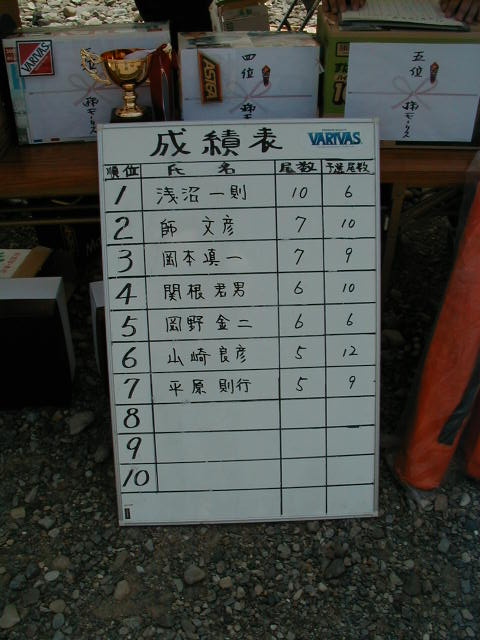 VARIVAS
四位
ASTRO
五位
成績表
VARIVAS
順位 氏名 尾数 予選尾数
1 浅沼一則 10 6
2 師 文彦 7 10
3 岡本真一 7 9
4 関根君男 6 10
5 岡野金二 6 6
6 山崎良彦 5 12
7 平原則行 5 9
8
9
10